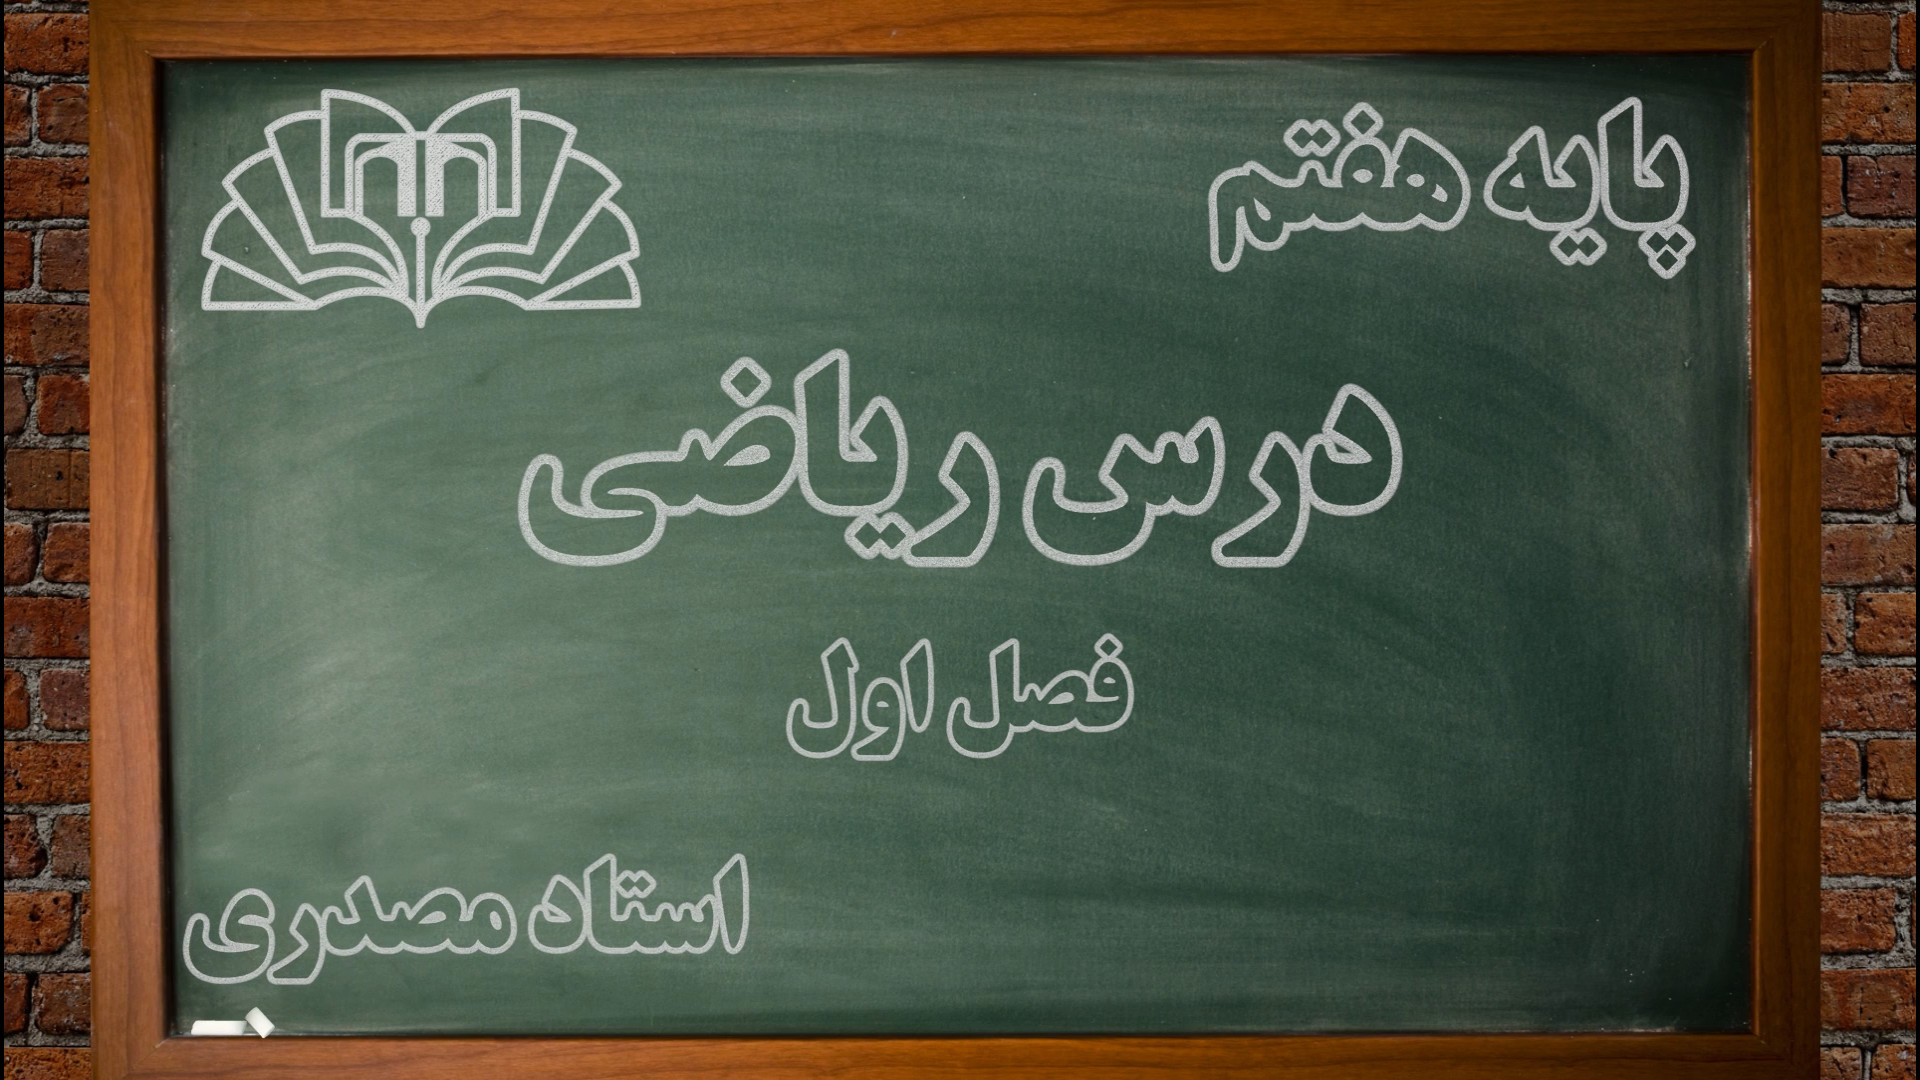 پایه هفتم
درس ریاضی
فصل اول
استاد مصدری